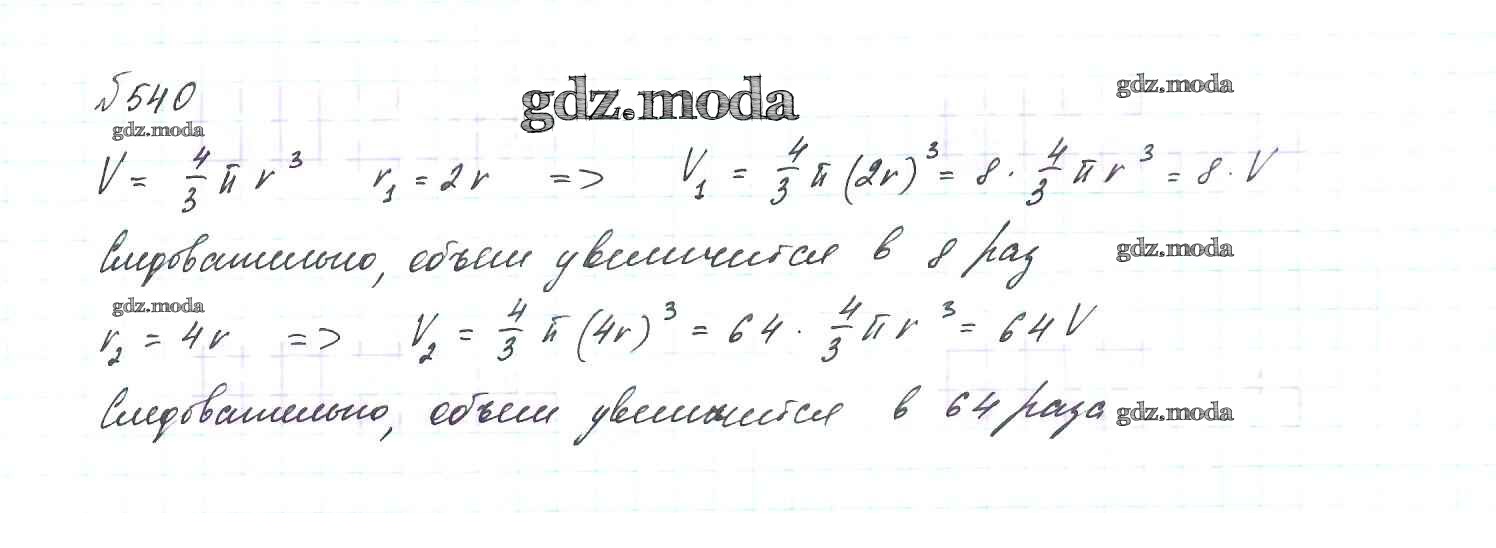 №540
gdz.moda
gdz.moda
gdz.moda
V = 4/3 π r³ r₁ = 2r => V₁ = 4/3 π (2r)³ = 8 · 4/3 π r³ = 8 · V
Следовательно, объем увеличится в 8 раз
gdz.moda
gdz.moda
r₂ = 4r => V₂ = 4/3 π (4r)³ = 64 · 4/3 π r³ = 64 V
Следовательно, объем увеличится в 64 раза
gdz.moda